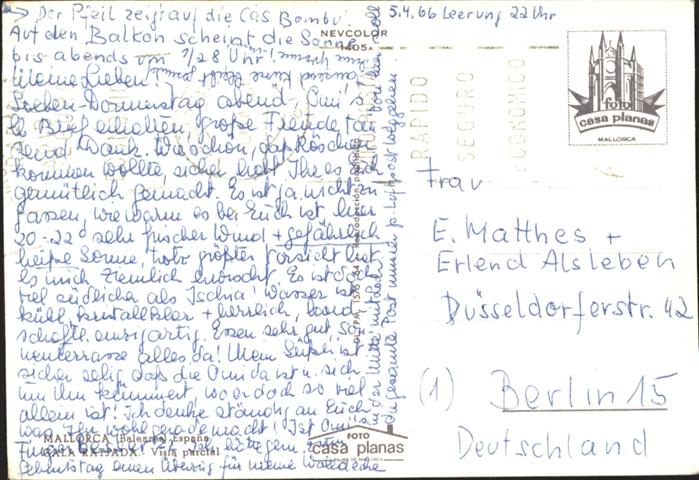 → Der Pfeil zeigt auf die Cas Bombu!
Auf den Balkon scheint die Sonne
bis abends um 1/28 Uhr!
Meine Lieben!
Soeben Donnerstag abend Omi's
lb. Brief erhalten, große Freude, tau
send Dank. Wie schön, daß Röschen
kommen wollte, sicher habt Ihr es
gemütlich gemacht. Es ist ja nicht zu
fassen, wie warm es bei Euch ist, hier
20-22° sehr frischer Wind + gefährlich
heiße Sonne, trotz größter Vorsicht hat
es mich ziemlich erwischt. Es ist doch
viel südlicher als Ischia! Wasser ist
kühl, kristallklar + herrlich, Land
schaft einzigartig. Essen sehr gut, Son
nenterrasse alles da! Mein
sicher selig, daß die Omi da ist u. sich
um ihn kümmert, wo er doch so viel
allein ist! Ich denke ständig an Euch
was Ihr wohl gerade macht! Ist Omi's
Finger
Geburtstag einen für meine
NEVCOLOR
1405A
5.4.66 Leerung 22 Uhr
RAPIDO
SEGURO
ECONOMICO
foto
casa planas
MALLORCA
Frau
E. Matthes +
Erlend Alsleben
Düsseldorferstr. 42
(1) Berlin 15
Deutschland
MALLORCA (Baleares) España
CALA RATJADA. Vista parcial
FOTO
casa planas